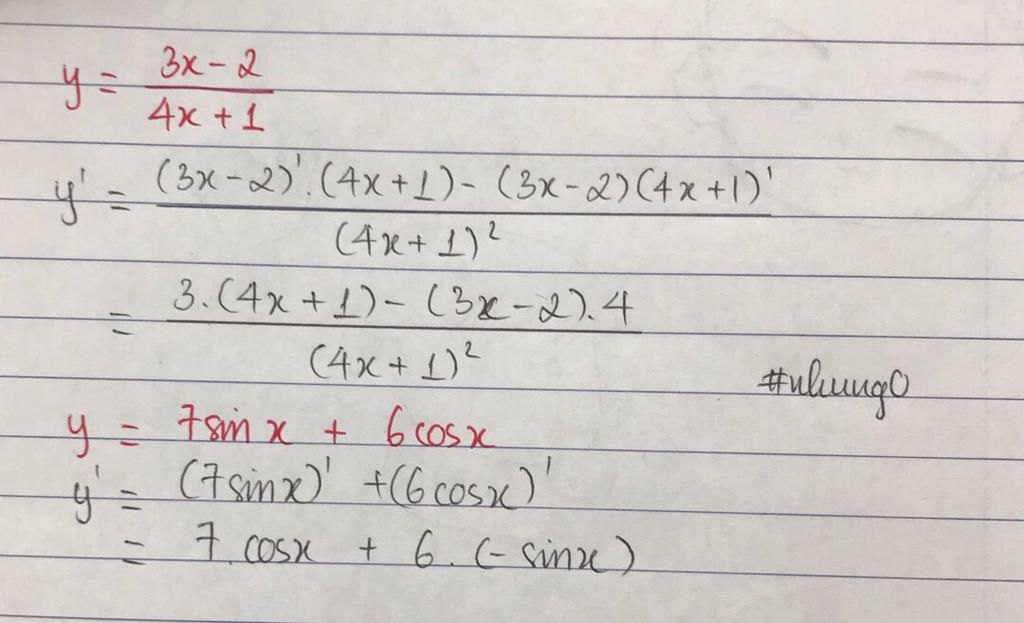 y = (3x - 2)/(4x + 1)
y' = ((3x - 2)'.(4x + 1) - (3x - 2)(4x + 1)')/(4x + 1)²
= (3.(4x + 1) - (3x - 2).4)/(4x + 1)²
#nhung0
y = 7sin x + 6cosx
y' = (7sinx)' + (6cosx)'
= 7.cosx + 6.(-sinx)